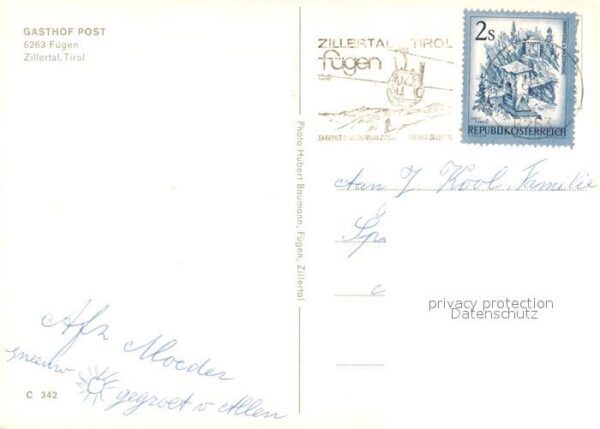 GASTHOF POST
6263 Fügen
Zillertal, Tirol
ZILLERTAL TIROL
fügen
2s
REPUBLIK ÖSTERREICH
Photo Hubert Baumann, Fügen, Zillertal
Aan J Kool Familie
privacy protection
Datenschutz
Afz Moeder
sneeuw
gegroet v Allen
C 342